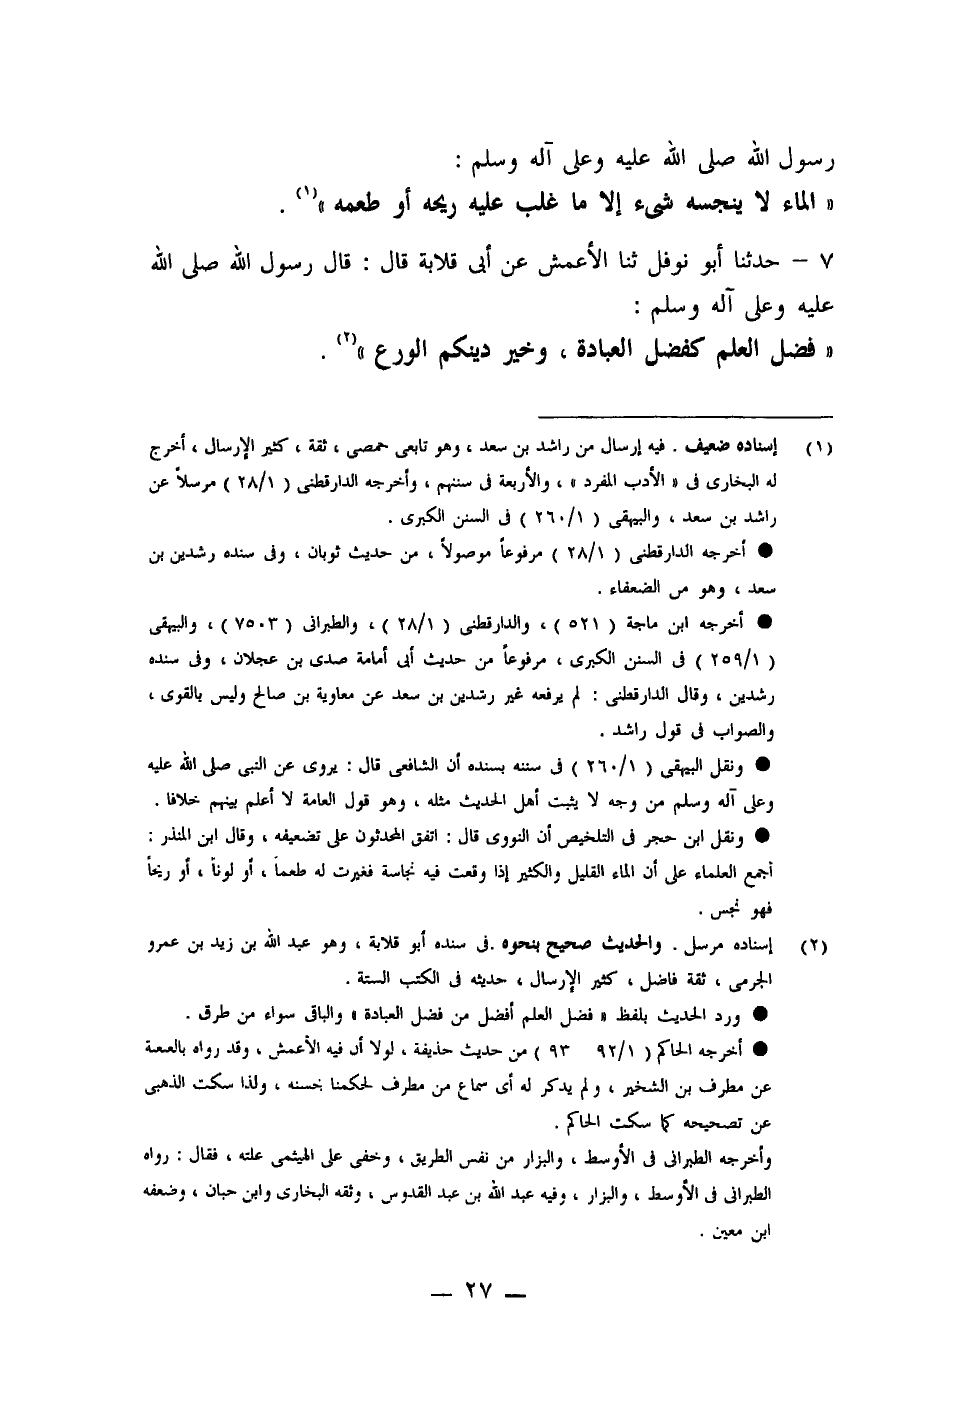 رسول الله صلى الله عليه وعلى آله وسلم :
« الماء لا ينجسه شىء إلا ما غلب عليه ريحه أو طعمه »(١) .
٧ – حدثنا أبو نوفل ثنا الأعمش عن أبى قلابة قال : قال رسول الله صلى الله
عليه وعلى آله وسلم :
« فضل العلم كفضل العبادة ، وخير دينكم الورع »(٢) .
(١) إسناده ضعيف . فيه إرسال من راشد بن سعد ، وهو تابعى حمصى ، ثقة ، كثير الإرسال ، أخرج
له البخارى فى « الأدب المفرد » ، والأربعة فى سننهم ، وأخرجه الدارقطنى ( ٢٨/١ ) مرسلاً عن
راشد بن سعد ، والبيهقى ( ٢٦٠/١ ) فى السنن الكبرى .
● أخرجه الدارقطنى ( ٢٨/١ ) مرفوعاً موصولاً ، من حديث ثوبان ، وفى سنده رشدين بن
سعد ، وهو من الضعفاء .
● أخرجه ابن ماجة ( ٥٢١ ) ، والدارقطنى ( ٢٨/١ ) ، والطبرانى ( ٧٥٠٣ ) ، والبيهقى
( ٢٥٩/١ ) فى السنن الكبرى ، مرفوعاً من حديث أبى أمامة صدى بن عجلان ، وفى سنده
رشدين ، وقال الدارقطنى : لم يرفعه غير رشدين بن سعد عن معاوية بن صالح وليس بالقوى ،
والصواب فى قول راشد .
● ونقل البيهقى ( ٢٦٠/١ ) فى سننه بسنده أن الشافعى قال : يروى عن النبى صلى الله عليه
وعلى آله وسلم من وجه لا يثبت أهل الحديث مثله ، وهو قول العامة لا أعلم بينهم خلافا .
● ونقل ابن حجر فى التلخيص أن النووى قال : اتفق المحدثون على تضعيفه ، وقال ابن المنذر :
أجمع العلماء على أن الماء القليل والكثير إذا وقعت فيه نجاسة فغيرت له طعماً ، أو لوناً ، أو ريحاً
فهو نجس .
(٢) إسناده مرسل . والحديث صحيح بنحوه .فى سنده أبو قلابة ، وهو عبد الله بن زيد بن عمرو
الجرمى ، ثقة فاضل ، كثير الإرسال ، حديثه فى الكتب الستة .
● ورد الحديث بلفظ « فضل العلم أفضل من فضل العبادة » والباقى سواء من طرق .
● أخرجه الحاكم ( ٩٢/١ ٩٣ ) من حديث حذيفة ، لولا أن فيه الأعمش ، وقد رواه بالعنعنة
عن مطرف بن الشخير ، ولم يذكر له أى سماع من مطرف لحكمنا بحسنه ، ولذا سكت الذهبى
عن تصحيحه كما سكت الحاكم .
وأخرجه الطبرانى فى الأوسط ، والبزار من نفس الطريق ، وخفى على الهيثمى علته ، فقال : رواه
الطبرانى فى الأوسط ، والبزار ، وفيه عبد الله بن عبد القدوس ، وثقه البخارى وابن حبان ، وضعفه
ابن معين .
— ٢٧ —